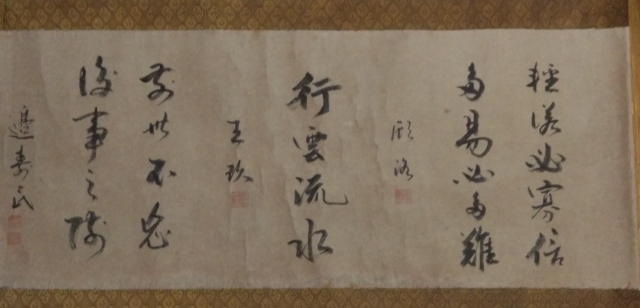 輕諾必寡信
多易必多難
顧洛
行雲流水
王玖
前世不忘
後事之師
邊壽民